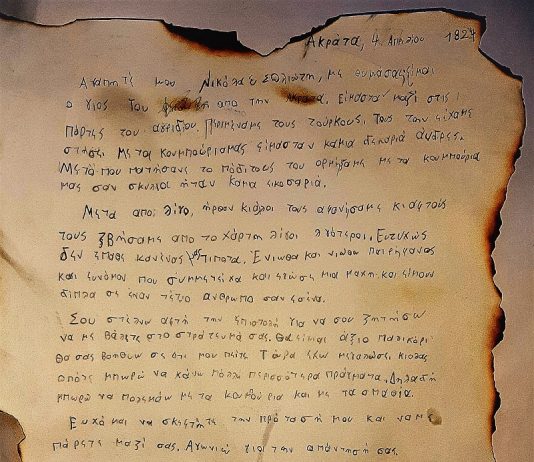 Ακράτα, 4 Απριλίου 1821
Αγαπητέ μου Νικόλαε Σολιώτη, με θυμάσαι; Είμαι
ο γιος του από την Ακράτα. Είμασταν μαζί στις
Πόρτες του Αγιδίου. Περιμέναμε τους τούρκους. Τους την είχαμε
στήσει με τα κουμπούρια μας είμασταν καμιά δεκαριά άνδρες.
Μετά που πατήσανε το πόδι τους του ορμήξαμε με τα κουμπούρια
μας σαν σκυλιά ήταν καμιά εικοσαριά.
Μετά από λίγο, ήρθαν κι άλλοι τους αφανήσαμε κι αυτούς
τους ξβήσαμε από το χάρτη λίγοι λιγότεροι. Ευτυχώς
δεν έπαθε κανένας μας τίποτα. Ένιωθα και νιώθω περήφανος
και δυνάμη που συμμετείχα και έζωσε μια μάχη και είμουν
δίπλα σε έναν τέτιο άνθρωπο σαν εσένα.
Σου στέλνω αυτή την επιστολή για να σου ζητήσω
να με βάλετε στο στράτευμά σας. Θα είμαι άξιο παλικάρι
θα σας βοηθώ σε ότι μου πείτε. Τώρα έχω μεγαλώσει κιόλας
οπότε μπορώ να κάνω πολλά περισσότερα πράγματα. Δηλαδή
μπορώ να πολεμάω με τα κουμπούρια και με τα σπαθιά.
Εύχομαι να σκεφτήτε την πρότασή μου και να με
πάρετε μαζί σας. Αγωνιώ για την απάντησή σας.